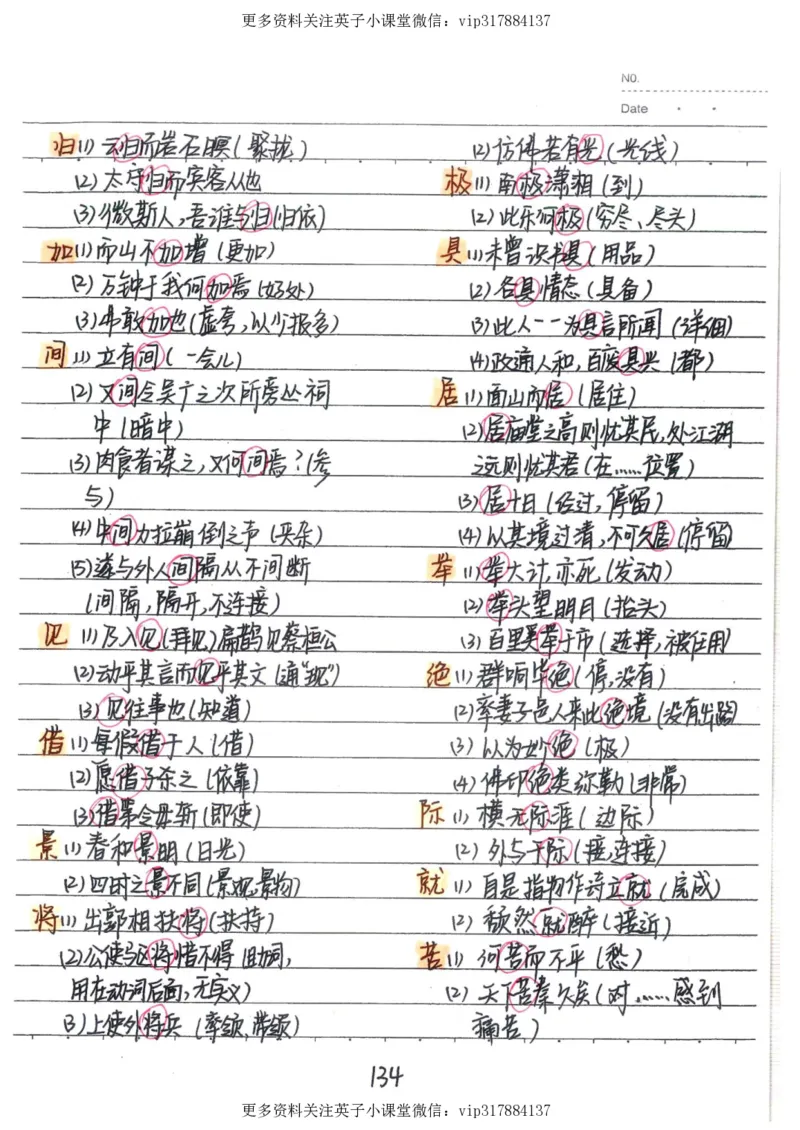 更多资料关注英子小课堂微信：vip317884137
NO.
Date
归(1)云归而岩石暝(聚拢)
(2)太守归而宾客从也
(3)微斯人,吾谁与归(归依)
加(1)而山不加增(更加)
(2)万钟于我何加焉(好处)
(3)弗敢加也(虚夸,以少报多)
间(1)立有间(一会儿)
(2)又间令吴广之次所旁丛祠
中(暗中)
(3)肉食者谋之,又何间焉?(参
与)
(4)中间力拉崩倒之声(夹杂)
(5)遂与外人间隔从不间断
(间隔,隔开,不连接)
见(1)及入见(拜见)扁鹊见蔡桓公
(2)动乎其言而见乎其文(通"现")
(3)见往事也(知道)
借(1)每假借于人(借)
(2)愿借子杀之(依靠)
(3)借第令毋斩(即使)
景(1)春和景明(日光)
(2)四时之景不同(景观,景物)
将(1)出郭相扶将(扶持)
(2)公使驱将惜不得(助词,
用在动词后面,无实义)
(3)上使外将兵(率领,带领)
(2)仿佛若有光(光线)
极(1)南极潇湘(到)
(2)此乐何极(穷尽、尽头)
具(1)未尝识书具(用品)
(2)各具情态(具备)
(3)此人一一为具言所闻(详细)
(4)政通人和,百废具兴(都)
居(1)面山而居(居住)
(2)居庙堂之高则忧其民,处江湖
之远则忧其君(在……位置)
(3)居十日(经过,停留)
(4)以其境过清,不可久居(停留)
举(1)举大计亦死(发动)
(2)举头望明月(抬头)
(3)百里奚举于市(选择,被任用)
绝(1)群响毕绝(停,没有)
(2)率妻子邑人来此绝境(没有出路)
(3)以为妙绝(极)
(4)佛印绝类弥勒(非常)
际(1)横无际涯(边际)
(2)外与天际(接,连接)
就(1)自是指物作诗立就(完成)
(2)颓然就醉(接近)
苦(1)何苦而不平(愁)
(2)天下苦秦久矣(对……感到
痛苦)
134
更多资料关注英子小课堂微信：vip317884137